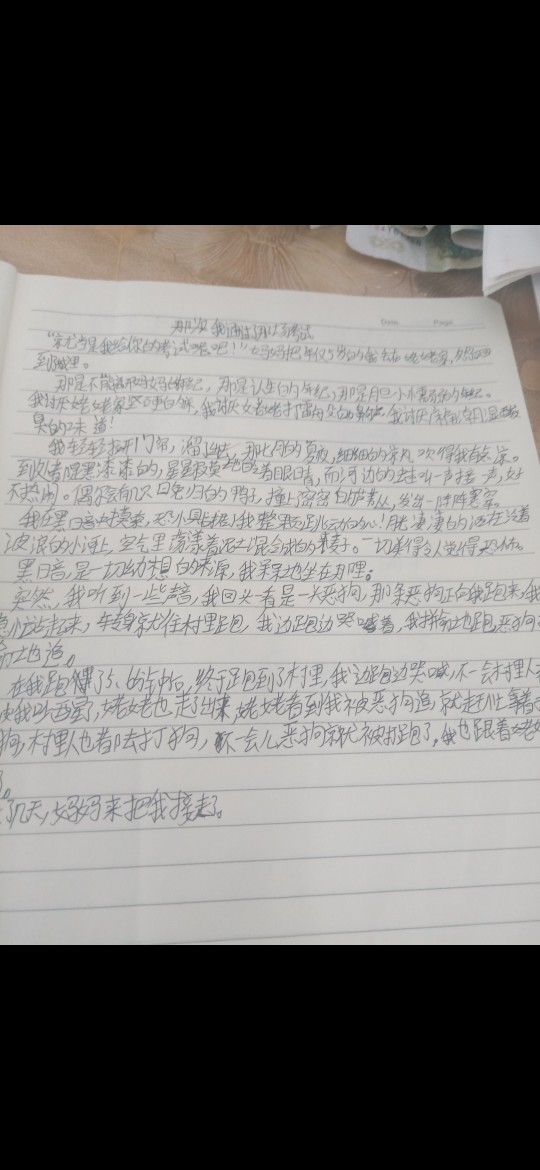 那次我通过了那场考试
Date Page
"就当是我给你的考试吧！"妈妈把年仅5岁的我丢在姥姥家，
到城里。
那是不能离开妈妈的年纪，那是认生的年纪，那是胆小
我讨厌姥姥家坚硬的床，我讨厌
臭的味道！
我轻轻打开门帘，溜了出去，那七月的夏夜，细细的凉风吹得我有些
到处都是黑漆漆的，星星顽皮地眨着眼睛，而河边的蛙叫一声接一声，好
不热闹。偶尔有几只回巢归的鸭子，撞上密密的芦苇丛，发出一阵阵
我在黑暗中摸索，恐惧占据了我整颗跳动的心！月凄凄的洒在泛着
波浪的小河上，空气里荡漾着泥土混合成的 一切美得令人觉得恐怖。
黑暗是一切幻想的来源，我呆呆地坐在那里。
突然，我听到一些声音，我回头一看是一头恶狗，那条恶狗正向我跑来，我
站起来，转身就往村里跑，我边跑边哭喊着，我拼命地跑恶狗
地追。
在我跑了5、6分钟后，终于跑到了村里，我边跑边哭喊，不一会村里人
我吵醒，姥姥也走了出来，姥姥看到我被恶狗追，就赶忙拿着
狗，村里人也都去打狗，不一会儿恶狗就被打跑了，我也跟着姥姥
了。
了几天，妈妈来把我接走了。